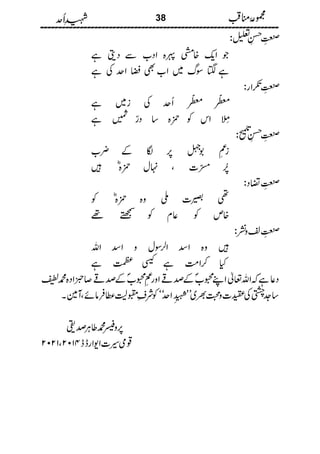 مجموعہ مناقب 38 شہیدِ اُحد
صنعتِ حسنِ تعلیل:
جو ایک خامشی پہرہ ادب سے دیتی ہے
ہے لگتا سوگ میں اب بھی فضا احد کی ہے
صنعتِ تکرار:
معطر معطر اُحد کی زمیں ہے
مِلا اس کو حمزہ سا درِّ ثمیں ہے
صنعتِ حسنِ تلمیح:
زعمِ بوجہل پر لگا کے ضرب
پُر مسرّت ، نہال حمزہؓ ہیں
صنعتِ تضاد:
تھی بصیرت ملی وہ حمزہؓ کو
خاص کو عام کو سمجھتے تھے
صنعتِ لف ونشر:
ہیں وہ اسد الرسول و اسد اللہ
کیا کرامت ہے کیسی عظمت ہے
دعا ہے کہ اللہ تعالیٰ اپنے محبوبؐ کے صدقے اور عمِ محبوبؐ کے صدقے صاحبزادہ محمد لطیف
ساجد چشتی کی عقیدت ومحبت بھری ’’شہیدِ احد‘‘ کو شرفِ مقبولیت عطا فرمائے، آمین۔
پروفیسر محمد طاہر صدیقی
قومی سیرت ایوارڈ ۲۰۱۴، ۲۰۲۱